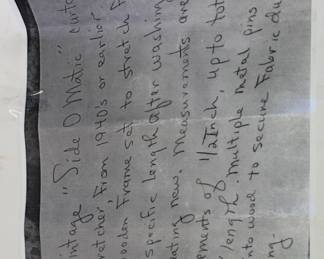 intage "Side O Matic" curta
retcher, From 1940's or earlier
ooden Frame set to stretch F
specific length after washin
lating new. Measurements are
ements of 1/2 Inch, up to tot
length. Multiple metal pins
nto wood to secure Fabric du
ng.